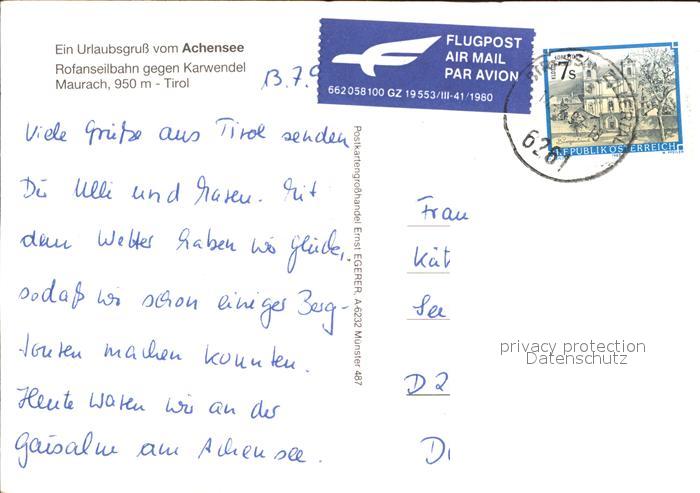 Ein Urlaubsgruß vom Achensee
Rofanseilbahn gegen Karwendel
Maurach, 950 m - Tirol
13.7.9
FLUGPOST
AIR MAIL
PAR AVION
662 058 100 GZ 19 553/III-41/1980
7s
REPUBLIK ÖSTERREICH
6201
Viele Grüße aus Tirol senden
Dir Ulli und Maren. Mit
dem Wetter haben wir Glück,
sodaß wir schon einige Berg-
touren machen konnten.
Heute waren wir an der
Gaisalm am Achensee.
Postkartengroßhandel Ernst EGERER, A-6232 Münster 487
Frau
Kät
See
D 2
privacy protection
Datenschutz